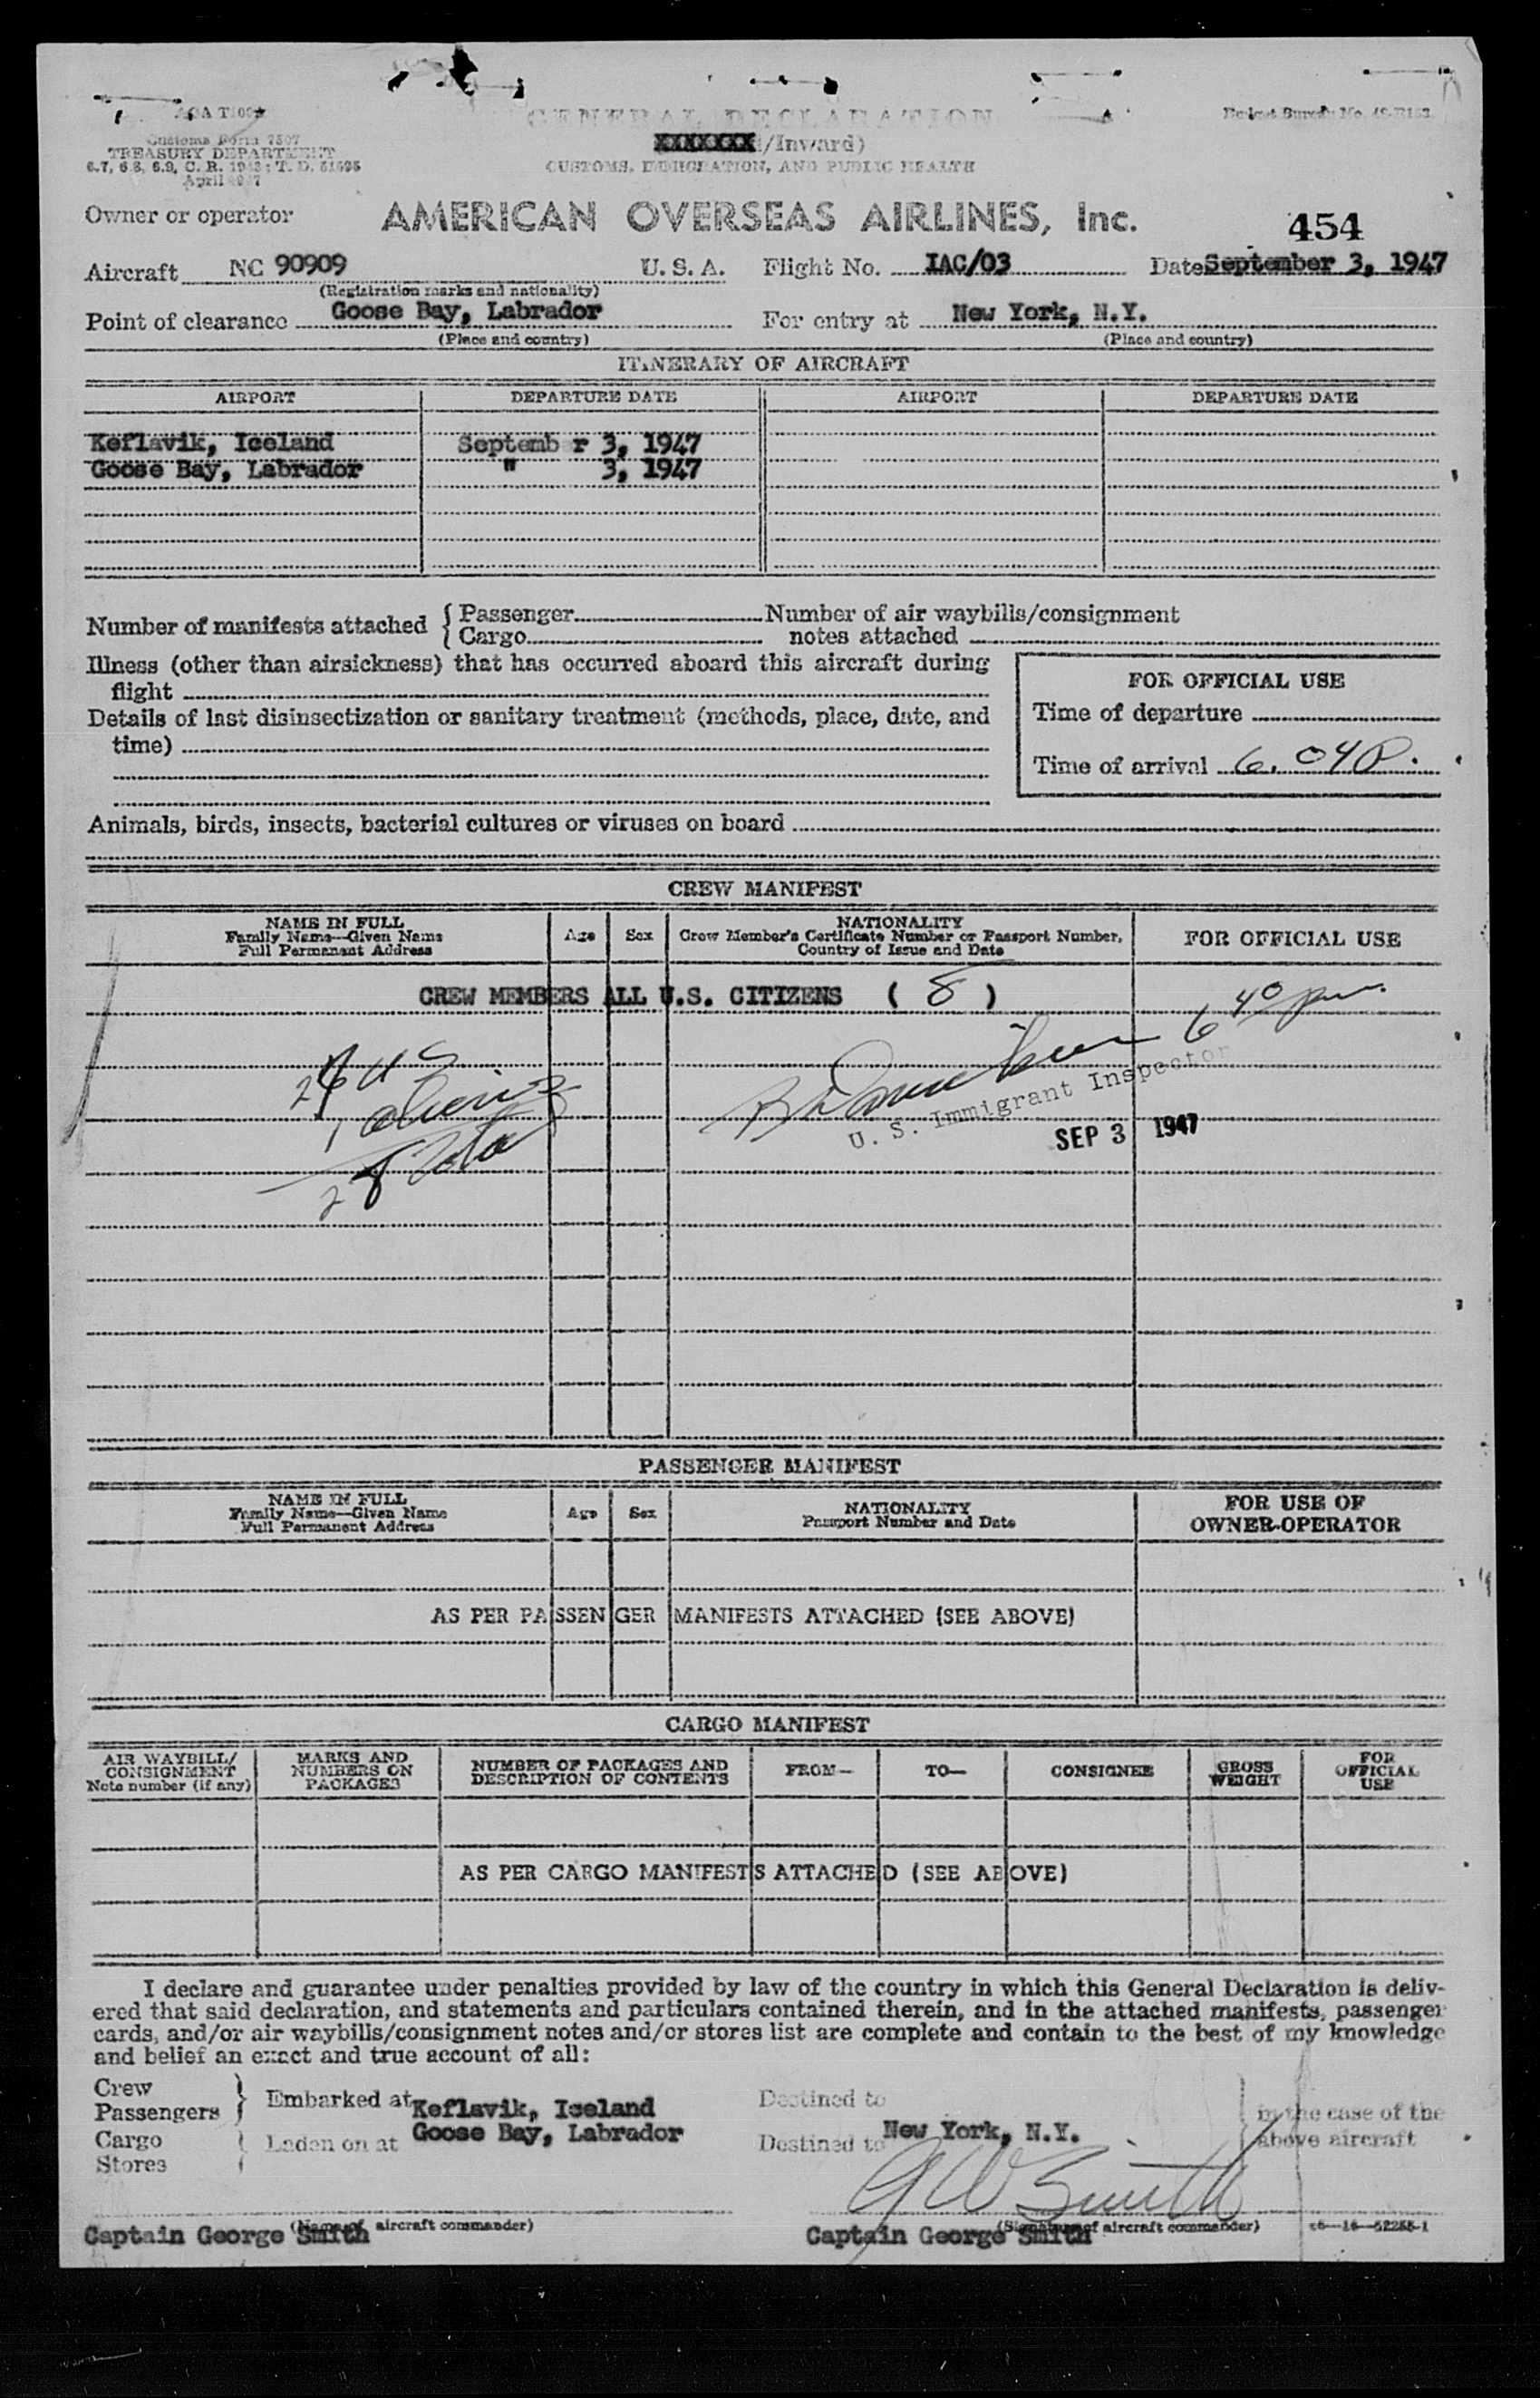 GENERAL DECLARATION
Budget Bureau No.
XXXXXXX/Inward)
Customs Form 7507
TREASURY DEPARTMENT
CUSTOMS, IMMIGRATION, AND PUBLIC HEALTH
April 1947
Owner or operator AMERICAN OVERSEAS AIRLINES, Inc. 454
Aircraft NC 90909 U. S. A. Flight No. IAC/03 Date September 3, 1947
(Registration marks and nationality)
Point of clearance Goose Bay, Labrador For entry at New York, N.Y.
(Place and country) (Place and country)
ITINERARY OF AIRCRAFT
AIRPORT DEPARTURE DATE AIRPORT DEPARTURE DATE
Keflavik, Iceland Septemb r 3, 1947
Goose Bay, Labrador " 3, 1947
Number of manifests attached { Passenger Number of air waybills/consignment
{ Cargo notes attached
Illness (other than airsickness) that has occurred aboard this aircraft during
flight
FOR OFFICIAL USE
Details of last disinsectization or sanitary treatment (methods, place, date, and
time)
Time of departure
Time of arrival 6.04P.
Animals, birds, insects, bacterial cultures or viruses on board
CREW MANIFEST
NAME IN FULL
Family Name—Given Name
Full Permanent Address
Age
Sex
NATIONALITY
Crew Member's Certificate Number or Passport Number,
Country of Issue and Date
FOR OFFICIAL USE
CREW MEMBERS ALL U.S. CITIZENS ( 8 )
6 40 pm.
U. S. Immigrant Inspector
SEP 3 1947
PASSENGER MANIFEST
NAME IN FULL
Family Name—Given Name
Full Permanent Address
Age
Sex
NATIONALITY
Passport Number and Date
FOR USE OF
OWNER-OPERATOR
AS PER PASSENGER MANIFESTS ATTACHED (SEE ABOVE)
CARGO MANIFEST
AIR WAYBILL/
CONSIGNMENT
Note number (if any)
MARKS AND
NUMBERS ON
PACKAGES
NUMBER OF PACKAGES AND
DESCRIPTION OF CONTENTS
FROM—
TO—
CONSIGNEE
GROSS
WEIGHT
FOR
OFFICIAL
USE
AS PER CARGO MANIFESTS ATTACHED (SEE ABOVE)
I declare and guarantee under penalties provided by law of the country in which this General Declaration is deliv-
ered that said declaration, and statements and particulars contained therein, and in the attached manifests, passenger
cards, and/or air waybills/consignment notes and/or stores list are complete and contain to the best of my knowledge
and belief an exact and true account of all:
Crew
Passengers } Embarked at Keflavik, Iceland Destined to in the case of the
Cargo
Stores
Laden on at Goose Bay, Labrador Destined to New York, N.Y. above aircraft
G W Smith
(Name of aircraft commander) (Signature of aircraft commander)
Captain George Smith Captain George Smith